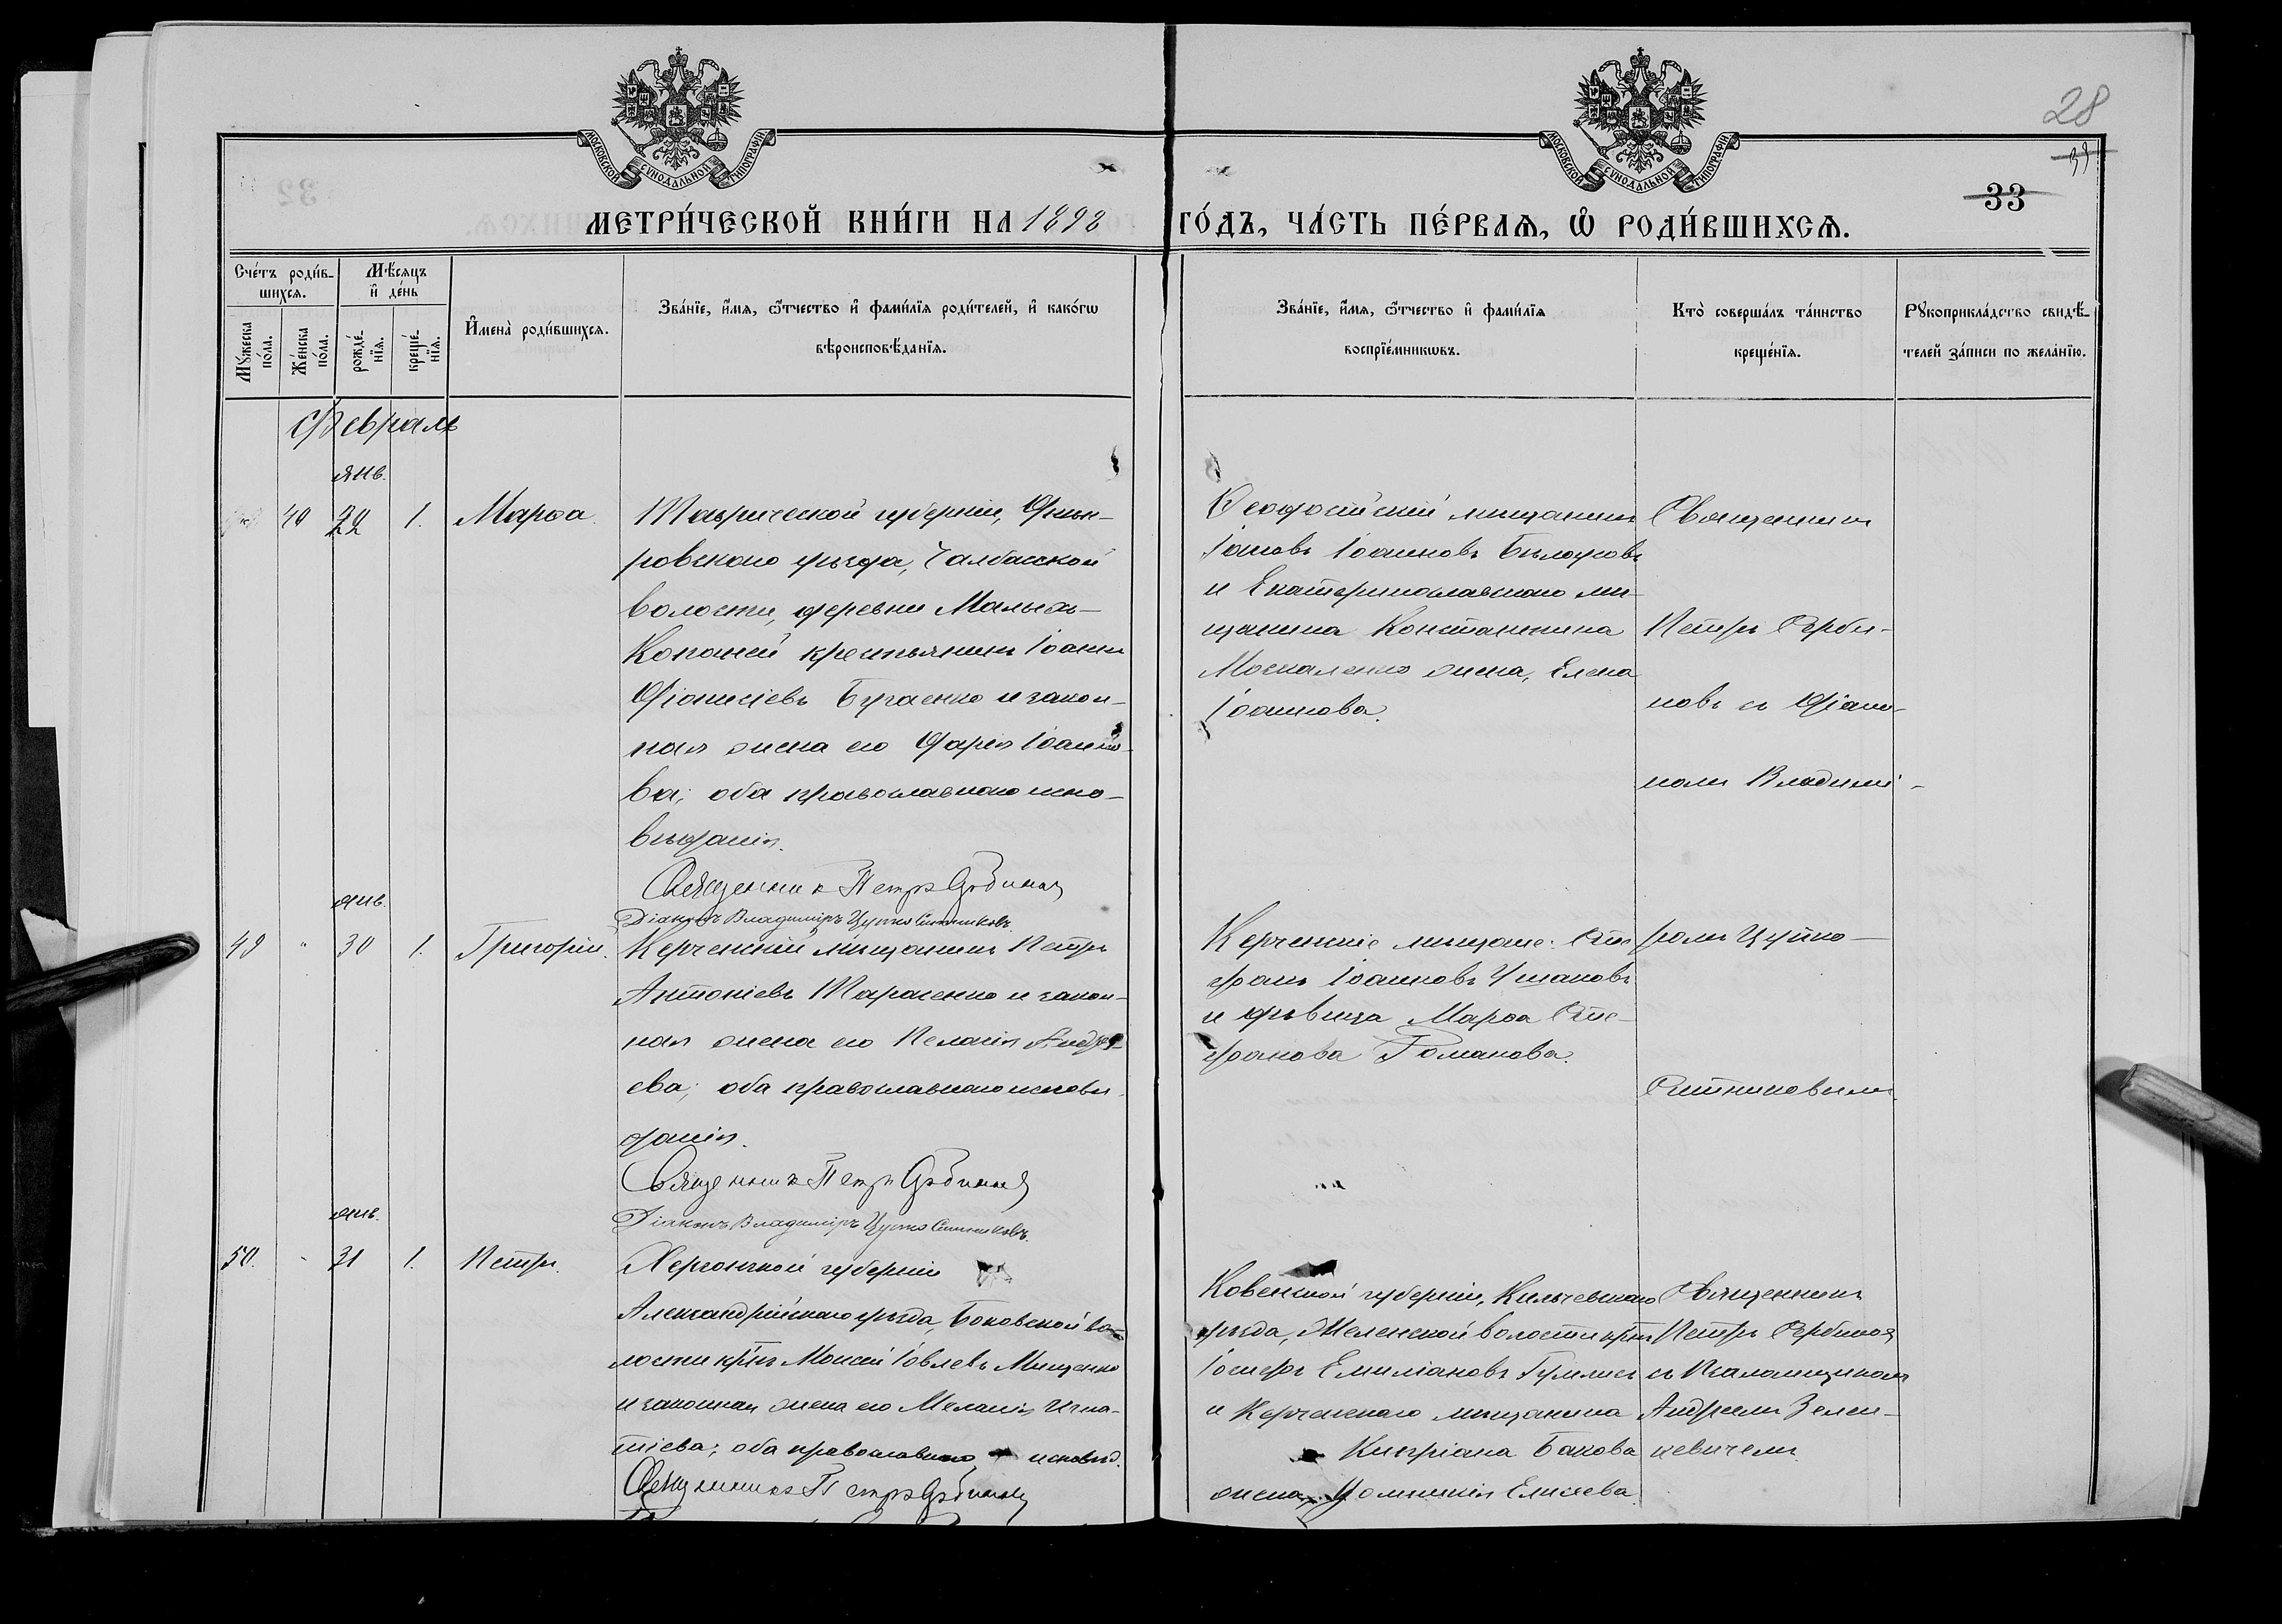 28
39
33
МОСКОВСКОЙ СУНОДАЛЬНОЙ ТИПОГРАФІИ
МОСКОВСКОЙ СУНОДАЛЬНОЙ ТИПОГРАФІИ
МЕТРИ́ЧЕСКОЙ КНИ́ГИ НА 1898 ГО́ДЪ, ЧА́СТЬ ПЕ́РВАѦ, Ѡ РОДИ́ВШИХСѦ.
Сче́тъ роди́в-
шихсѧ.
Мѣ́сѧцъ
и҆ де́нь
Мꙋ́жеска
по́ла.
Же́нска
по́ла.
рожде́-
нїѧ.
креще́-
нїѧ.
И҆мена̀ роди́вшихсѧ.
Зва́нїе, и҆́мѧ, ѻ҆́тчество и҆ фами́лїѧ роди́телей, и҆ како́гѡ
вѣроисповѣ́данїѧ.
Зва́нїе, и҆́мѧ, ѻ҆́тчество и҆ фами́лїѧ
воспрїе́мникѡвъ.
Кто̀ соверша́лъ та́инство
креще́нїѧ.
Рꙋкоприкла́дство свидѣ́-
телей за́писи по жела́нїю.
Февраль
янв.
40 29 1. Марѳа.
Таврической губерніи, Днѣп-
ровскаго уѣзда, Чалбасской
волости, деревни Малыхъ-
Копаней крестьянинъ Іоаннъ
Діонисіевъ Бугаенко и закон-
ная жена его Дарія Іоанно-
ва; оба православнаго испо-
вѣданія.
Священникъ Петръ Сербиновъ
Діаконъ Владиміръ Цупко Ситниковъ.
Ѳеодосійскій мѣщанинъ
Іоаннъ Іоанновъ Бѣлоусовъ
и Екатеринославскаго мѣ-
щанина Константина
Москаленко жена, Елена
Іоаннова.
Священникъ
Петръ Серби-
новъ съ Діако-
номъ Владимі-
янв.
49 " 30 1. Григорій.
Керченскій мѣщанинъ Петръ
Антоніевъ Тарасенко и закон-
ная жена его Пелагія Андре-
ева; оба православнаго исповѣ-
данія.
Священникъ Петръ Сербиновъ
Діаконъ Владиміръ Цупко Ситниковъ.
Керченскіе мѣщане: Сте
фанъ Іоанновъ Ушаковъ
и дѣвица Марѳа Сте-
фанова Романова.
ромъ Цупко-
Ситниковымъ.
янв.
50. 31 1. Петръ.
Херсонской губерніи
Александрійскаго уѣзда, Боковской во-
лости кр-нъ Моисей Іовлевъ Мищенко
и законная жена его Меланія Игна-
тіева; оба православнаго исповѣд.
Священникъ Петръ Сербиновъ
Ковенской губерніи,
уѣзда, волости кр-нъ
Іосифъ Емиліановъ
и Керченскаго мѣщанина
Кипріана Бакова
жена, Домникія Елисеева.
Священникъ
Петръ Сербиновъ
съ Псаломщикомъ
Андреемъ Зелен-
кевичемъ.